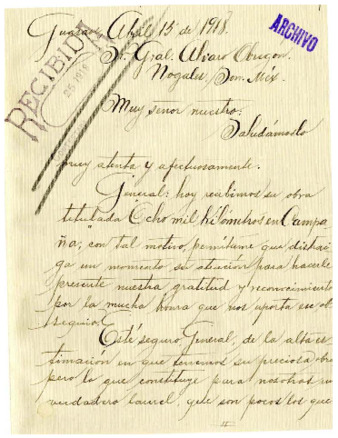 ARCHIVO
Abril 15 de 1918.
RECIBIDA
Sr. Gral. Alvaro Obregon.
Nogales, Son. Méx.
Muy señor nuestro:
Saludámoslo
muy atenta y afectuosamente.
General: hoy recibimos su obra
titulada "Ocho mil Kilómetros en Campa-
ña"; con tal motivo, permítame que distrai-
ga un momento su atención para hacerle
presente nuestra gratitud y reconocimiento
por la mucha honra que nos aporta su ob-
sequio.
Esté seguro General, de la alta es-
timación en que tenemos su preciosa obra
pero lo que constituye para nosotros un
verdadero laurel, que son pocos los que